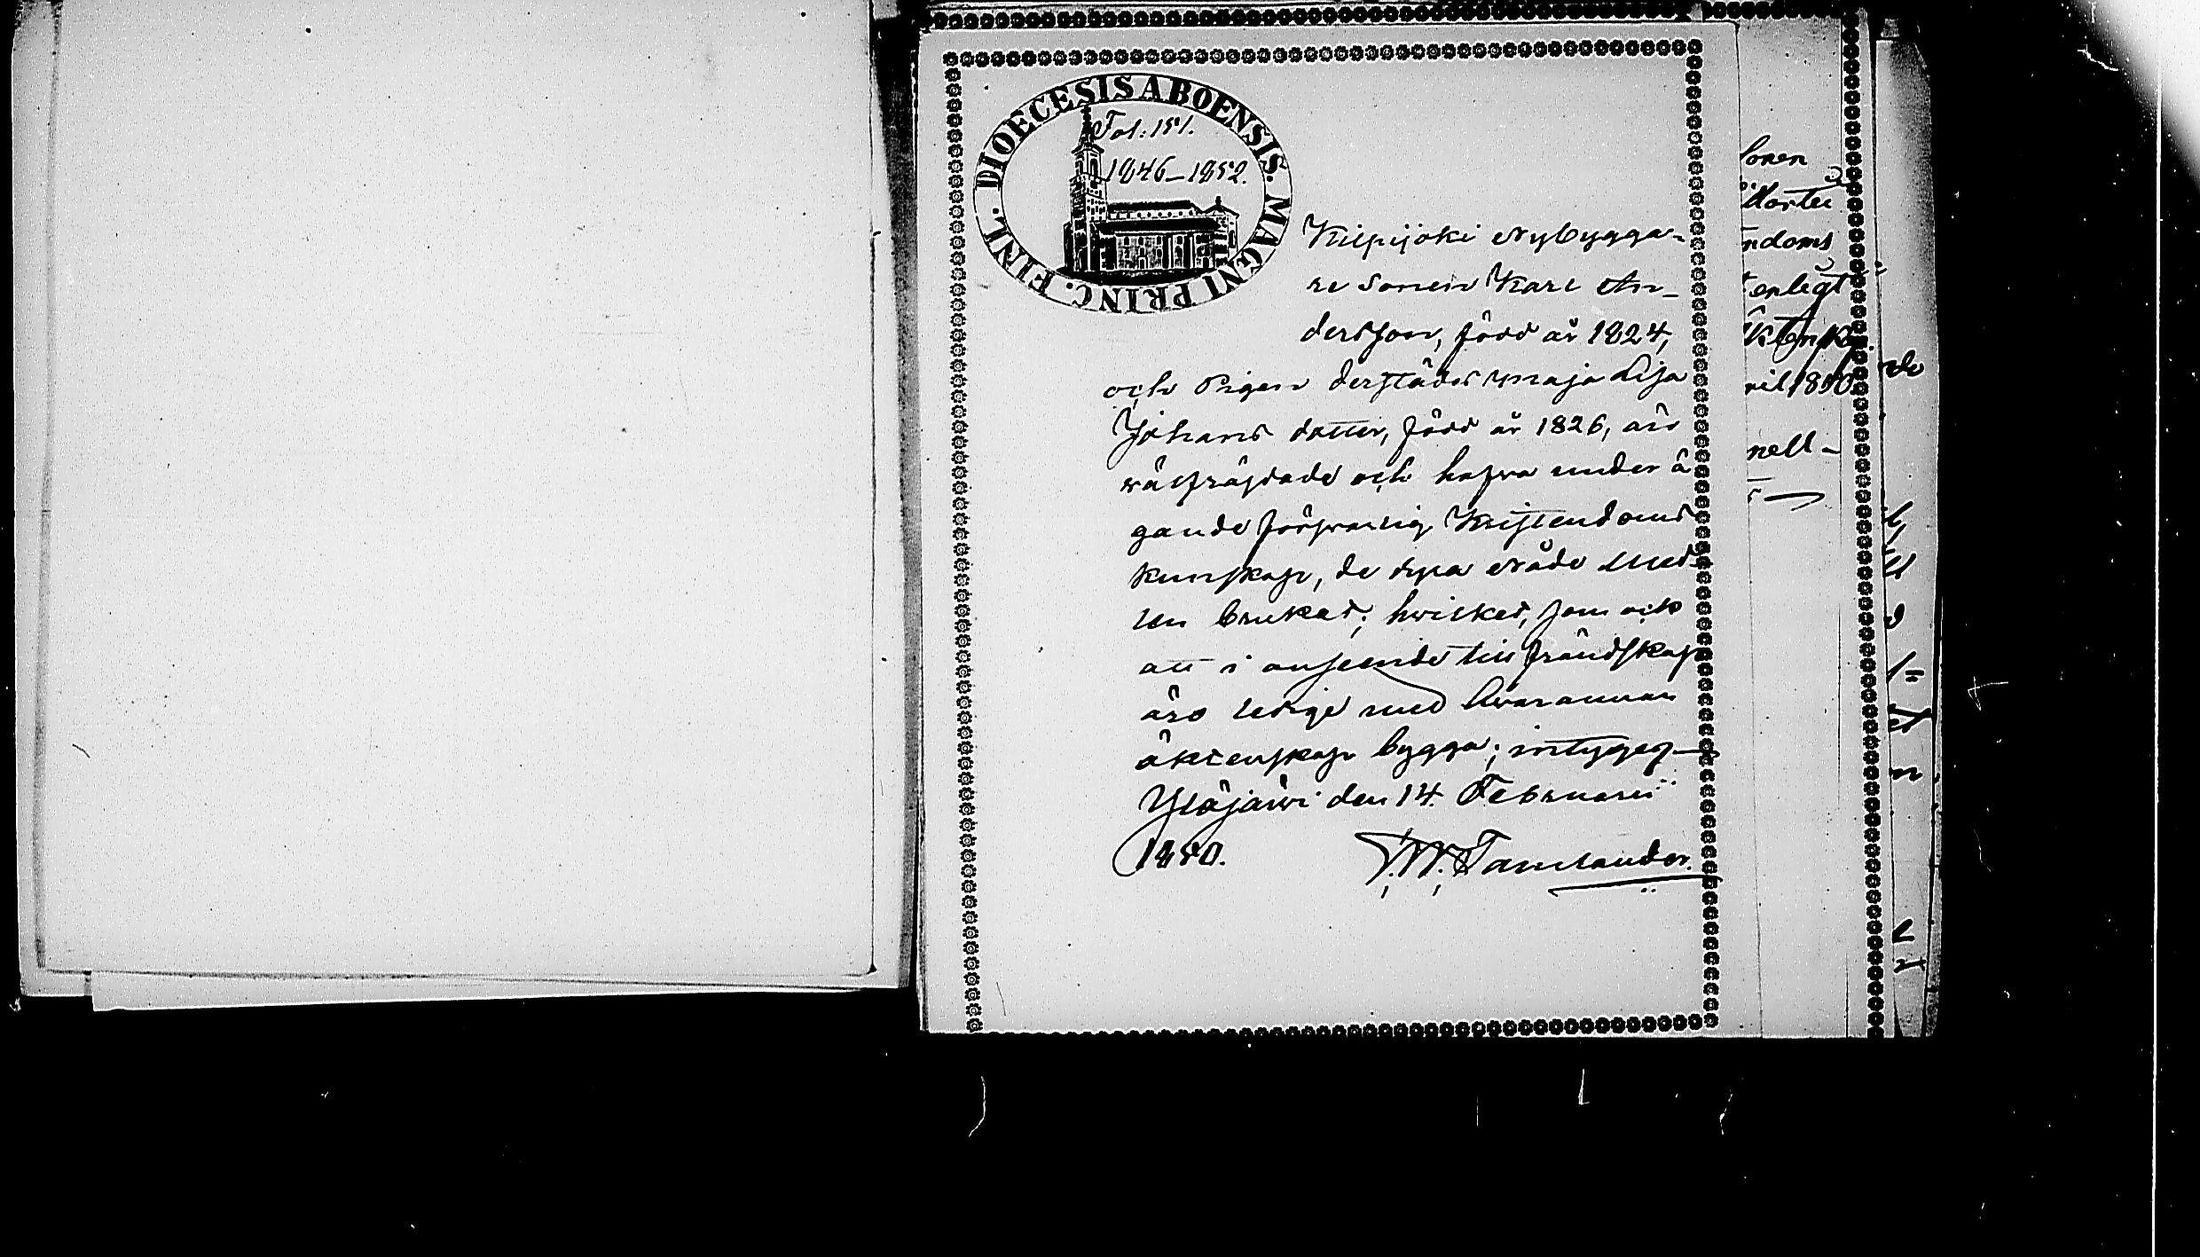 DIOECESIS ABOENSIS. MAGNI PRINC. FINL.
Fol. 151.
1846–1852.
Kilpijoki Nybygga-
re Sonen Karl An-
dersson, född år 1824,
och Pigan derstädes Maja Lisa
Johans dotter, född år 1826, äro
välfräjdade och hafva under å
gande försvarlig Kristendoms
kunskap, de dyra Nåde Med-
len brukat; hvilket, som ock
att i anseende till frändskap
äro ledige med hvarannan
äktenskap bygga; intygar
Ylöjärvi den 14 Februarii
1850.
F.W. Tamlander.
sonen
dotter
ndoms
enligt
ril 1850
nell-